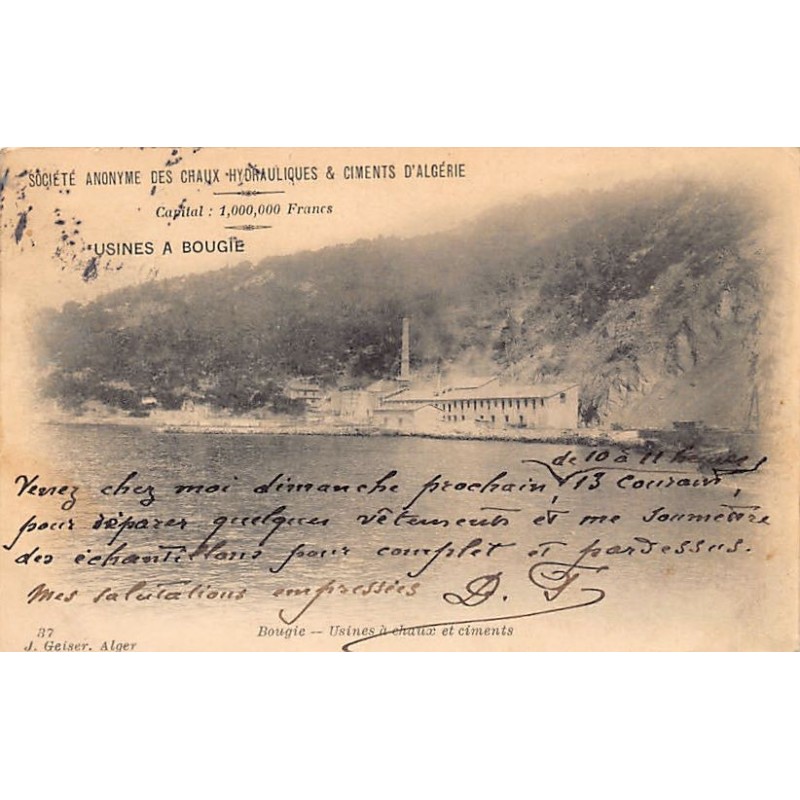 SOCIÉTÉ ANONYME DES CHAUX HYDRAULIQUES & CIMENTS D'ALGÉRIE
Capital : 1,000,000 Francs
USINES A BOUGIE
de 10 à 11 heures
Venez chez moi dimanche prochain, 13 courant,
pour réparer quelques vêtements et me soumettre
des échantillons pour complet et pardessus.
Mes salutations empressées D. F.
37 Bougie — Usines à chaux et ciments
J. Geiser, Alger